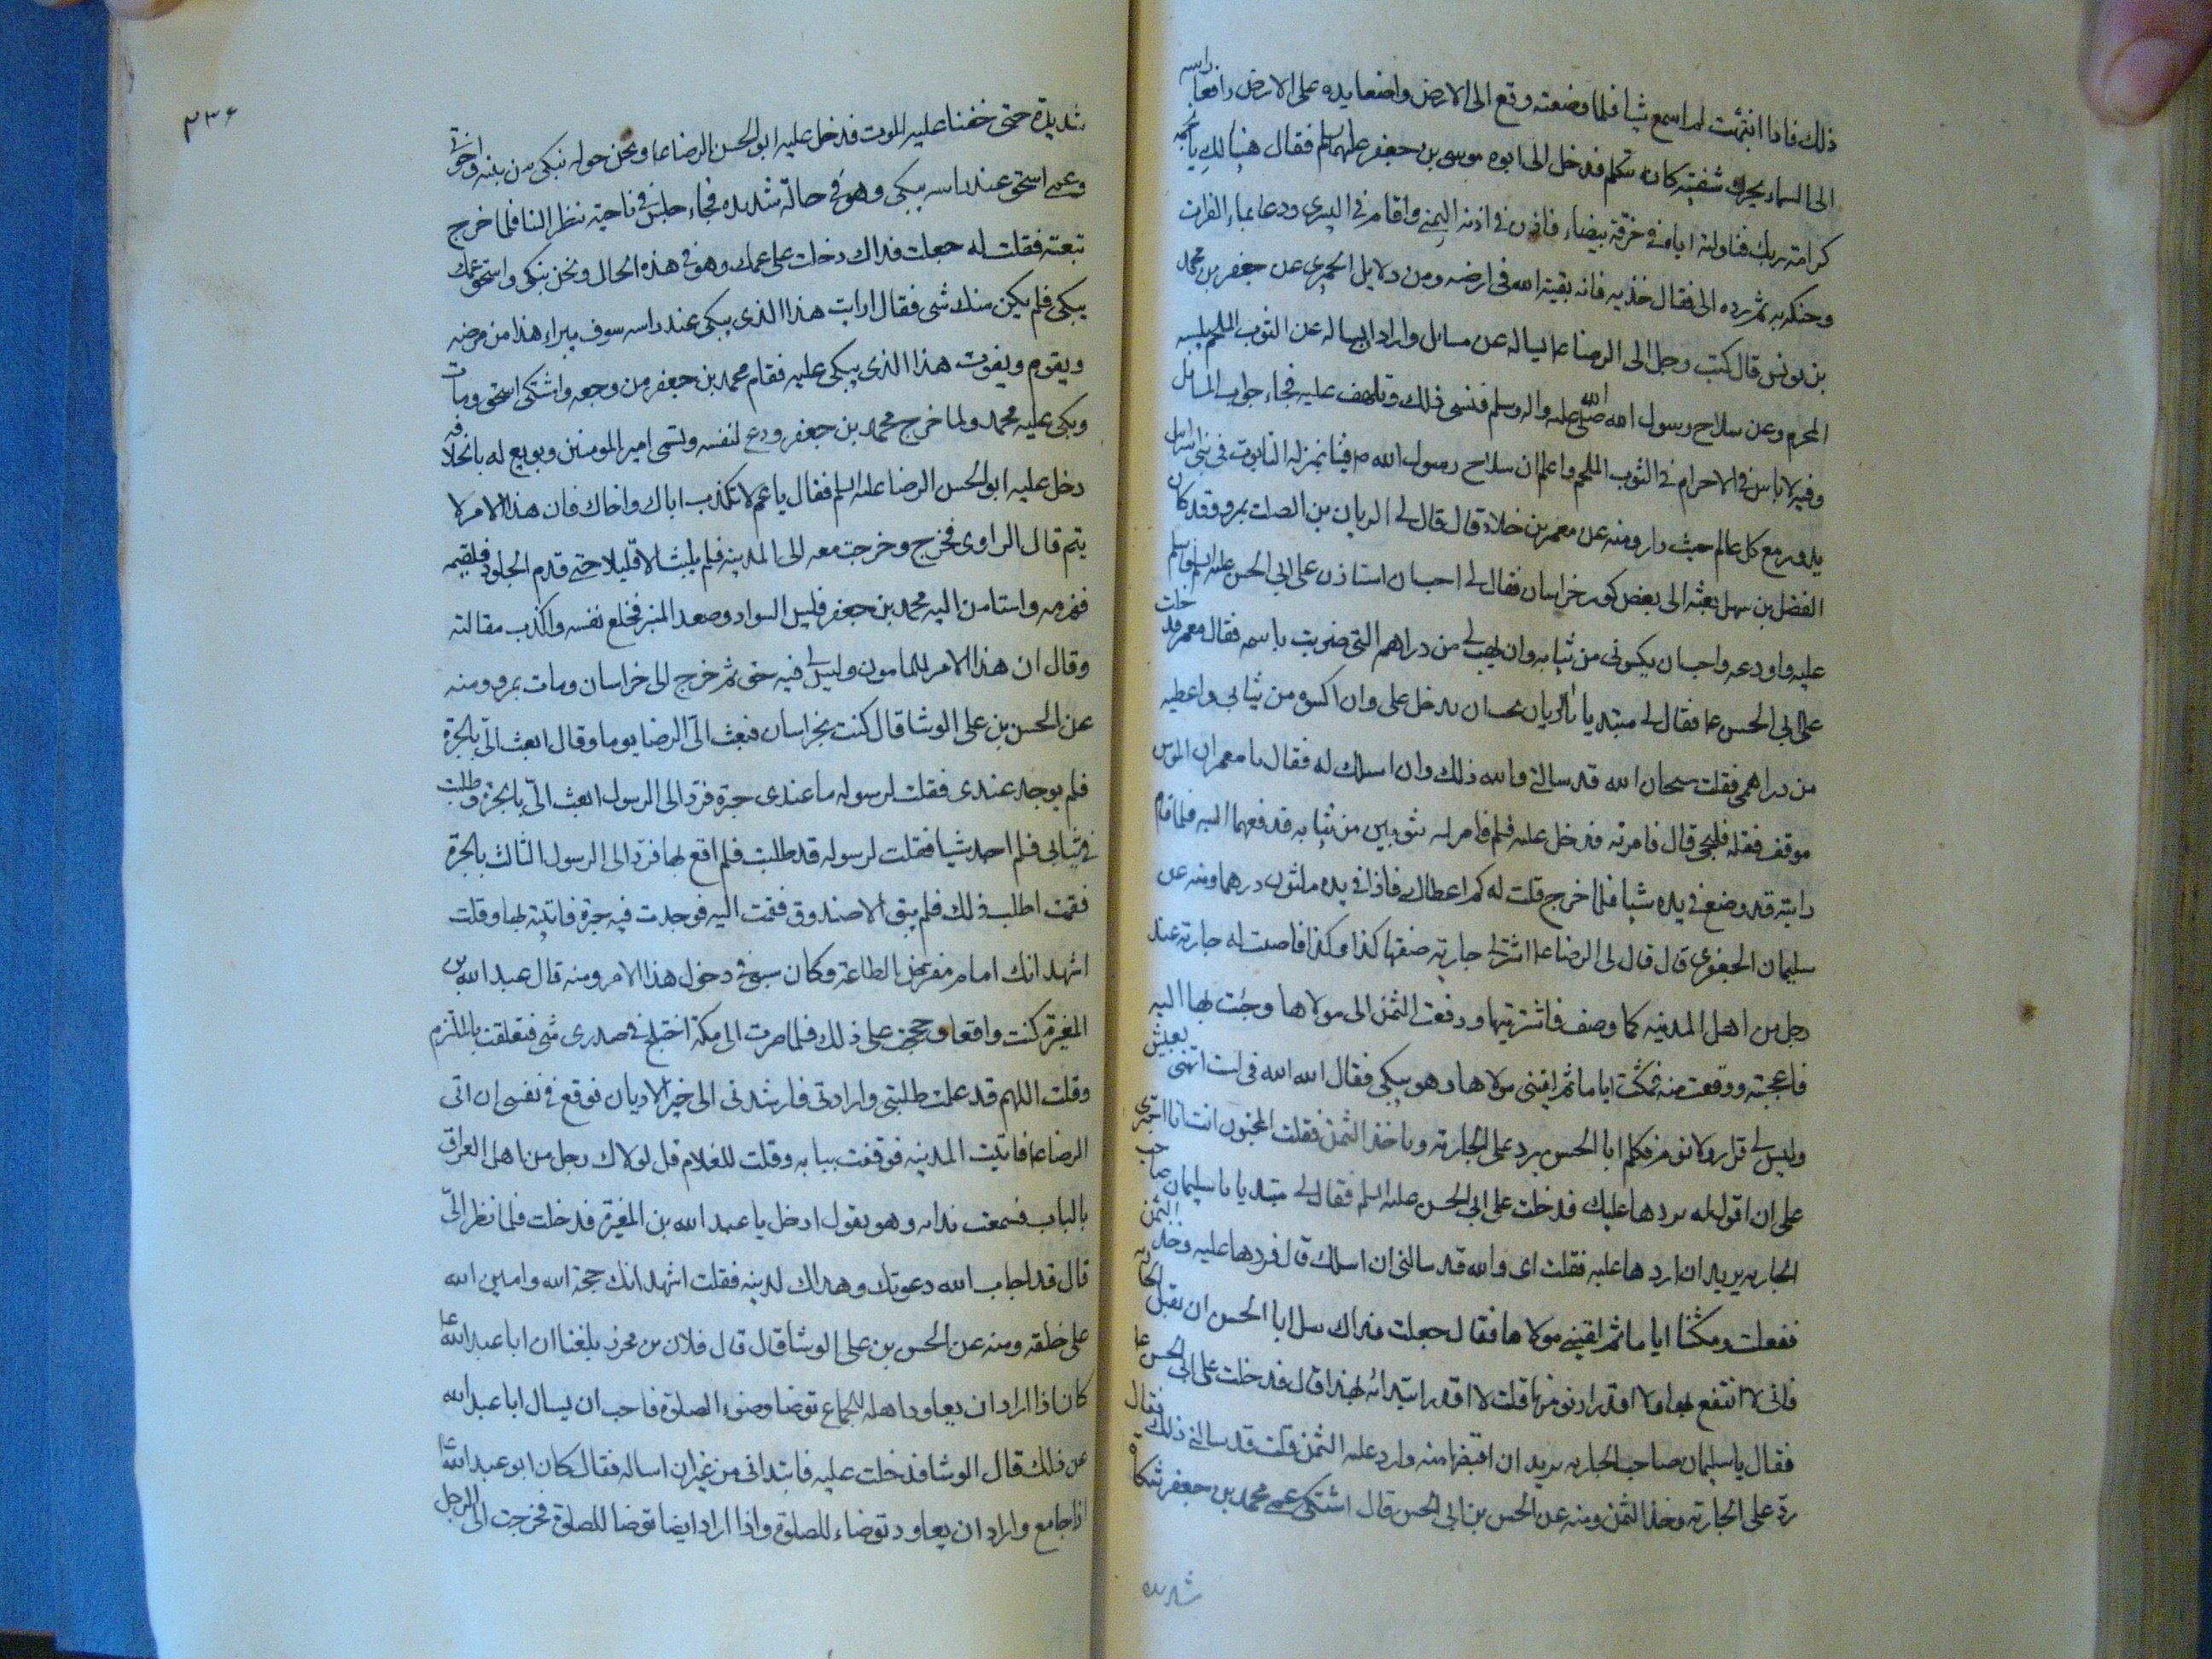 ذلك فاذا انتبهت لم اسمع شيا فلما وضعته وقع الى الارض واضعا يده على الارض رافعا راسه
الى السماء يحرك شفتيه كانه يتكلم فدخل الى ابوه موسى بن جعفر عليهما السلم فقال هنيا لك يا نجمه
كرامة ربك فناولته اياه في خرقة بيضاء فاذن في اذنه اليمنى واقام في اليسرى ودعا بماء الفرات
وحنكه به ثم رده الى فقال خذيه فانه بقية الله في ارضه ومن دلايل الحميرى عن جعفر بن محمد
بن يونس قال كتب رجل الى الرضا عا يساله عن مسائل واراد ان يساله عن الثوب الملحم يلبسه
المحرم وعن سلاح رسول الله صلى الله عليه واله وسلم فنسى ذلك وتلهف عليه فجاء جواب المسائل
وفيه لا باس في الاحرام في الثوب الملحم واعلم ان سلاح رسول الله ص فينا بمنزله التابوت في بنى اسرايل
يدور مع كل عالم حيث دار ومنه عن معمر بن خلاد قال قال لى الريان بن الصلت بمرو وقد كان
الفضل بن سهل بعثه الى بعض كور خراسان فقال لى احب ان استاذن على ابي الحسن عليه السلم فاسلم
عليه واودعه واحب ان يكسونى من ثيابه وان يهب لى من دراهم التى ضربت باسمه فقال معمر فدخلت
على ابي الحسن عا فقال لى مبتديا بالريان يحب ان يدخل على وان اكسوه من ثيابي واعطيه
من دراهمى فقلت سبحان الله قد سالنى والله ذلك وان اسلك له فقال يا معمر ان المومن
موفق فقل له فليجى قال فامرته فدخل عليه فسلم فامر له بثوبين من ثيابه فدفعهما اليه فلما قام
رايته قد وضع في يده شيا فلما خرج قلت له كم اعطاك فاذا في يده ثلثون درهما ومنه عن
سليمان الجعفرى قال قال لى الرضا عا اشتر لى جارية صفتها كذا وكذا فاصبت له جارية عند
رجل من اهل المدينه كما وصف فاشتريتها ودفعت الثمن الى مولاها وجئت بها اليه
فاعجبته ووقعت منه فمكثت اياما ثم لقينى مولاها وهو يبكى فقال الله الله في لست اتهنى بعيش
وليس لى قرار ولا نوم فكلم ابا الحسن يرد على الجارية وياخذ الثمن فقلت امجنون انت انا اجترى
على ان اقول له يردها عليك فدخلت على ابي الحسن عليه السلم فقال لى مبتديا يا سليمان صاحب
الجاريه يريد ان اردها عليه فقلت اى والله قد سالنى ان اسلك قال فردها عليه وخذ الثمن
ففعلت ومكثنا اياما ثم لقينى مولاها فقال جعلت فداك سل ابا الحسن ان يقبل الجاريه
فانى لا انتفع بها ولا اقدر ادنو منها قلت لا اقدر ابتدائه بهذا قال فدخلت على ابي الحسن عا
فقال يا سليمان صاحب الجاريه يريد ان اقبضها منه وارد عليه الثمن قلت قد سالنى ذلك فقال
رد على الجارية وخذ الثمن ومنه عن الحسن بن ابي الحسن قال اشتكى عمى محمد بن جعفر شكاة
شديده
٢٣٤
شديدة حتى خفنا عليه الموت فدخل عليه ابو الحسن الرضا عا ونحن حوله نبكى من بنيه واخوته
وعمى اسحق عند راسه يبكى وهو في حالة شديده فجاء جلس في ناحية نظر الينا فلما خرج
تبعته فقلت له جعلت فداك دخلت على عمك وهو في هذه الحال ونحن نبكى واسحق عمك
يبكى فلم يكن منك شى فقال ارايت هذا الذى يبكى عند راسه سوف يبراء هذا من مرضه
ويقوم ويفوت هذا الذى يبكى عليه فقام محمد بن جعفر من وجعه واشتكى اسحق ومات
وبكى عليه محمد ولما خرج محمد بن جعفر ودع لنفسه وتسمى امير المومنين وبويع له بالخلافه
دخل عليه ابو الحسن الرضا عليه السلم فقال يا عم لا تكذب اباك واخاك فان هذا الامر لا
يتم قال الراوى فخرج وخرجت معه الى المدينه فلم يلبث الا قليلا حتى قدم الجلودى فلقيه
فهزمه واستامن اليه محمد بن جعفر فلبس السواد وصعد المنبر فخلع نفسه واكذب مقالته
وقال ان هذا الامر للمامون وليس لى فيه حق ثم خرج الى خراسان ومات بمرو ومنه
عن الحسن بن على الوشا قال كنت بخراسان فبعث الى الرضا يوما وقال ابعث الى بالحبرة
فلم يوجد عندى فقلت لرسوله ما عندى حبرة فرد الى الرسول ابعث الى بالحبرة وطلبت
في ثيابي فلم اجد شيا فقلت لرسوله قد طلبت فلم اقع بها فرد الى الرسول الثالث بالحبرة
فقمت اطلب ذلك فلم يبق الا صندوق فقمت اليه فوجدت فيه حبرة فاتيته بها وقلت
اشهد انك امام مفترض الطاعة وكان سببي في دخول هذا الامر ومنه قال عبد الله بن
المغيرة كنت واقفا وحججت على ذلك فلما صرت الى مكة اختلج في صدرى شى فتعلقت بالملتزم
وقلت اللهم قد علمت طلبتى وارادتى فارشدنى الى خير الاديان فوقع في نفسى ان اتى
الرضا عا فاتيت المدينه فوقفت ببابه وقلت للغلام قل لمولاك رجل من اهل العراق
بالباب فسمعت نداه وهو يقول ادخل يا عبد الله بن المغيرة فدخلت فلما نظر الى
قال قد اجاب الله دعوتك وهداك لدينه فقلت اشهد انك حجة الله وامين الله
على خلقه ومنه عن الحسن بن على الوشا قال قال فلان بن محرز بلغنا ان ابا عبد الله عا
كان اذا اراد ان يعاود اهله للجماع توضا وضوء الصلوة فاحب ان يسال ابا عبد الله
عن ذلك قال الوشا فدخلت عليه فابتدانى من غير ان اساله فقال كان ابو عبد الله عا
اذا جامع واراد ان يعاود توضاء للصلوة واذا اراد ايضا توضا للصلوة فخرجت الى الرجل